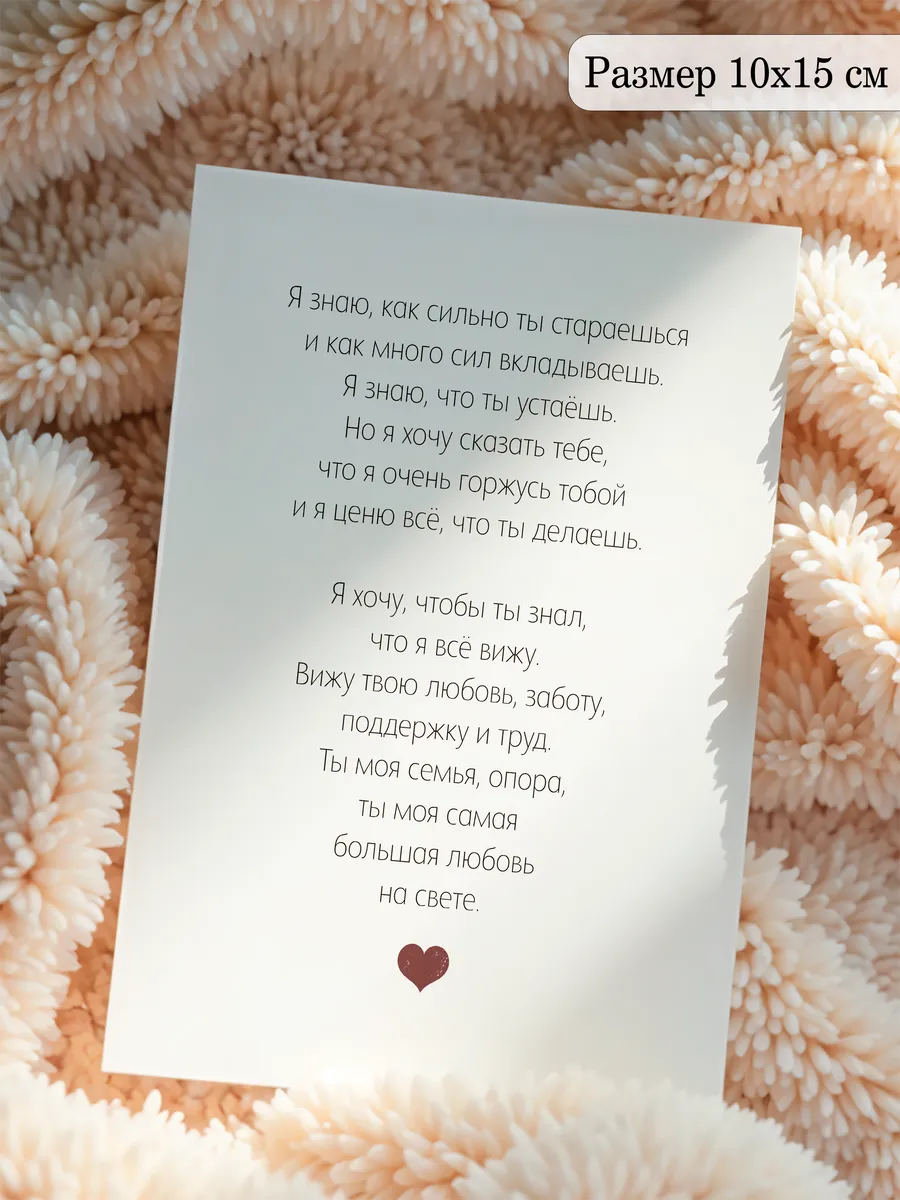 Размер 10х15 см
Я знаю, как сильно ты стараешься
и как много сил вкладываешь.
Я знаю, что ты устаёшь.
Но я хочу сказать тебе,
что я очень горжусь тобой
и я ценю всё, что ты делаешь.
Я хочу, чтобы ты знал,
что я всё вижу.
Вижу твою любовь, заботу,
поддержку и труд.
Ты моя семья, опора,
ты моя самая
большая любовь
на свете.